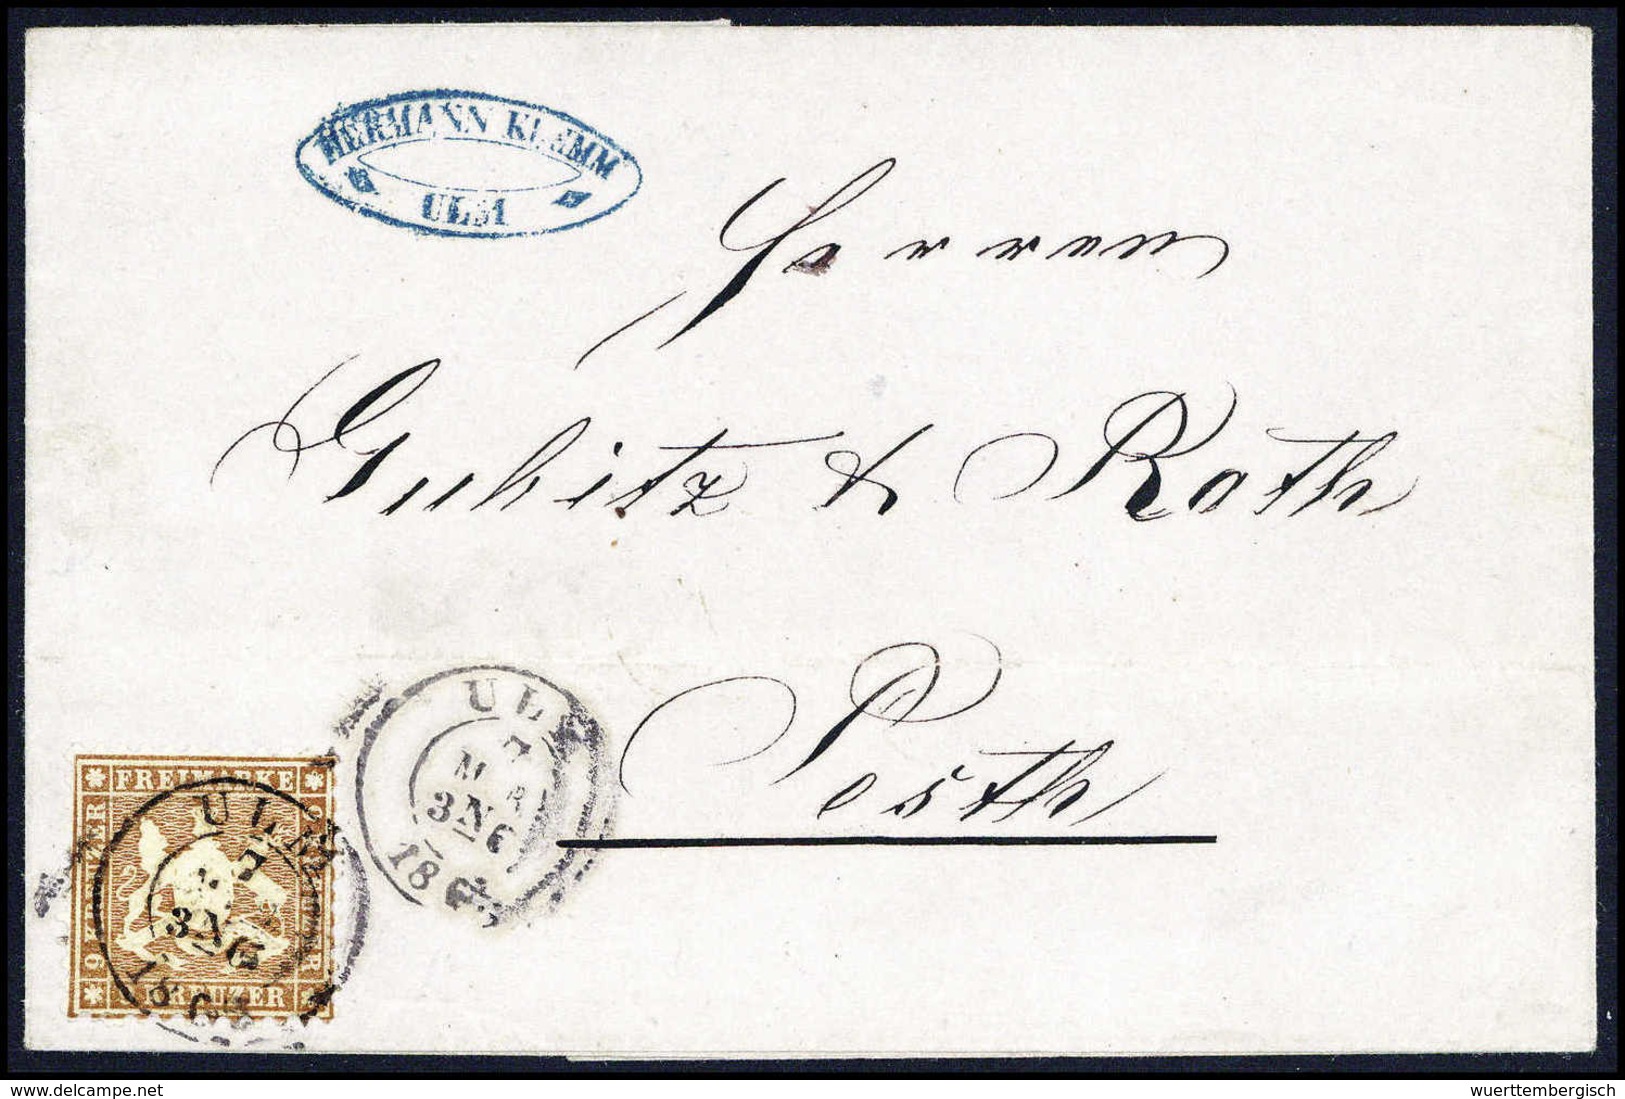 HERMANN KLEMM
ULM
Herren
Gubitz & Roth
Pesth
ULM
7
MAI
3 N 6
1863
FREIMARKE
9 KREUZER
ULM
7
3 N 6
1863
KREUZER
© delcampe.net
wuerttembergisch